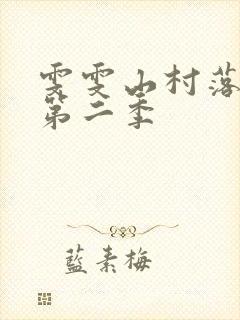 雯雯山村落
第二季
藍素梅